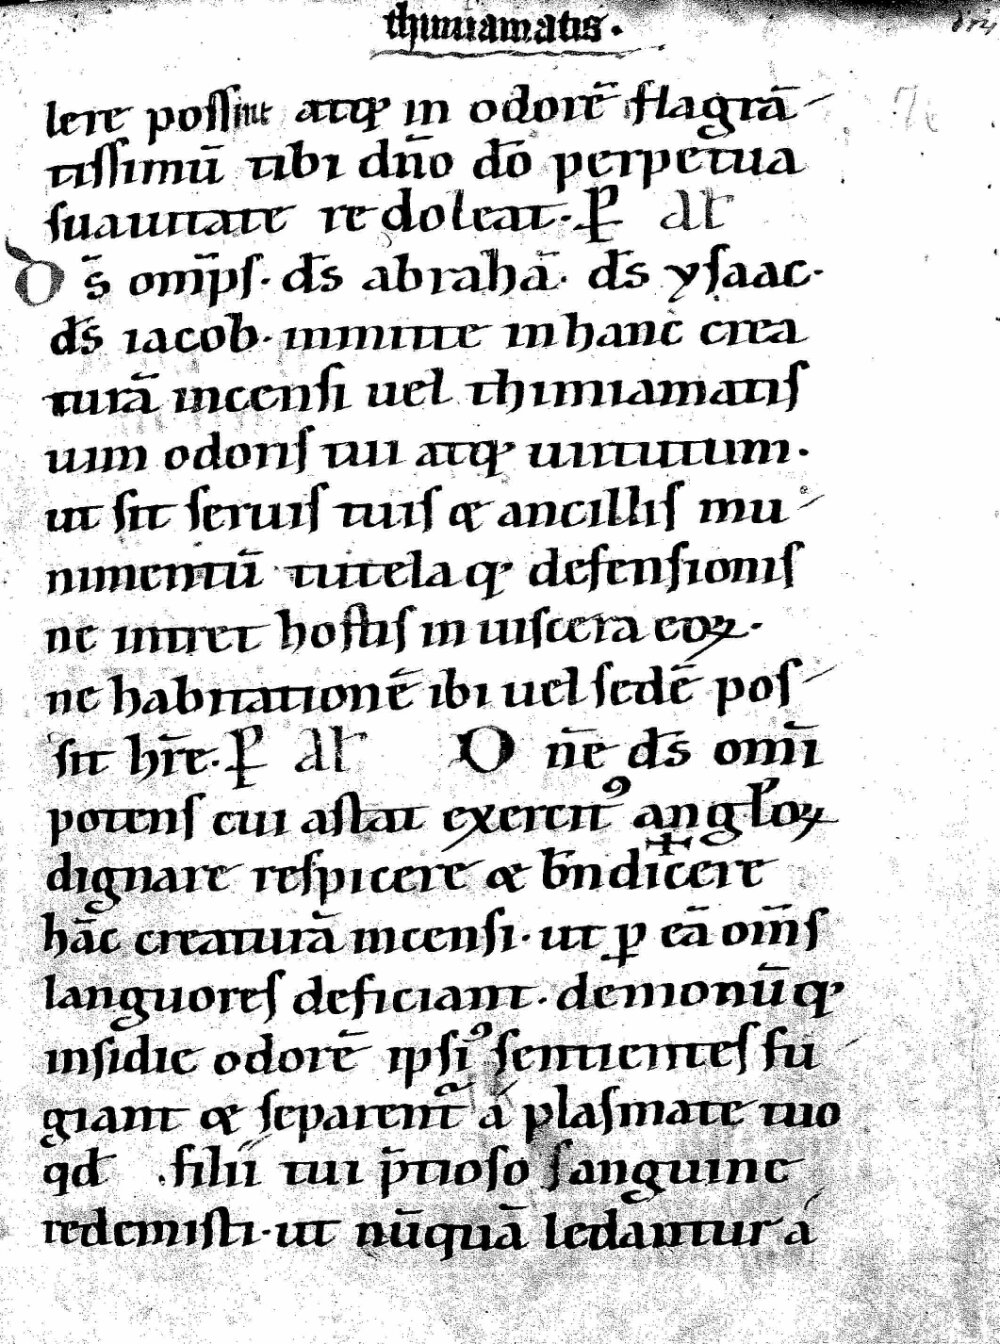 thimiamatis.
lere possint atq; in odorē flagrā
tissimū tibi dn̄o dō perpetua
suauitate redoleat. P al̄
Ds̄ om̄ps. ds̄ abrahā. ds̄ ysaac.
ds̄ iacob. inmitte in hanc crea
turā incensi uel thimiamatis
uim odoris tui atq; uirtutum.
ut sit seruis tuis & ancillis mu
nimentū tutelaq; defensionis
ne intret hostis in uiscera eoꝝ.
ne habitationē ibi uel sedē pos
sit hr̄e. P al̄ Dn̄e ds̄ om̄i
potens cui astat exercitꝰ angl̄oꝝ
dignare respicere & bn̄di✝cere
hāc creaturā incensi. ut ꝑ eā om̄s
languores deficiant. demonūq;
insidie odorē ipsiꝰ sentientes fu
giant & separent᷑ á plasmate tuo
qd̄ filii tui p̄tioso sanguine
redemisti. ut nūquā ledantur á